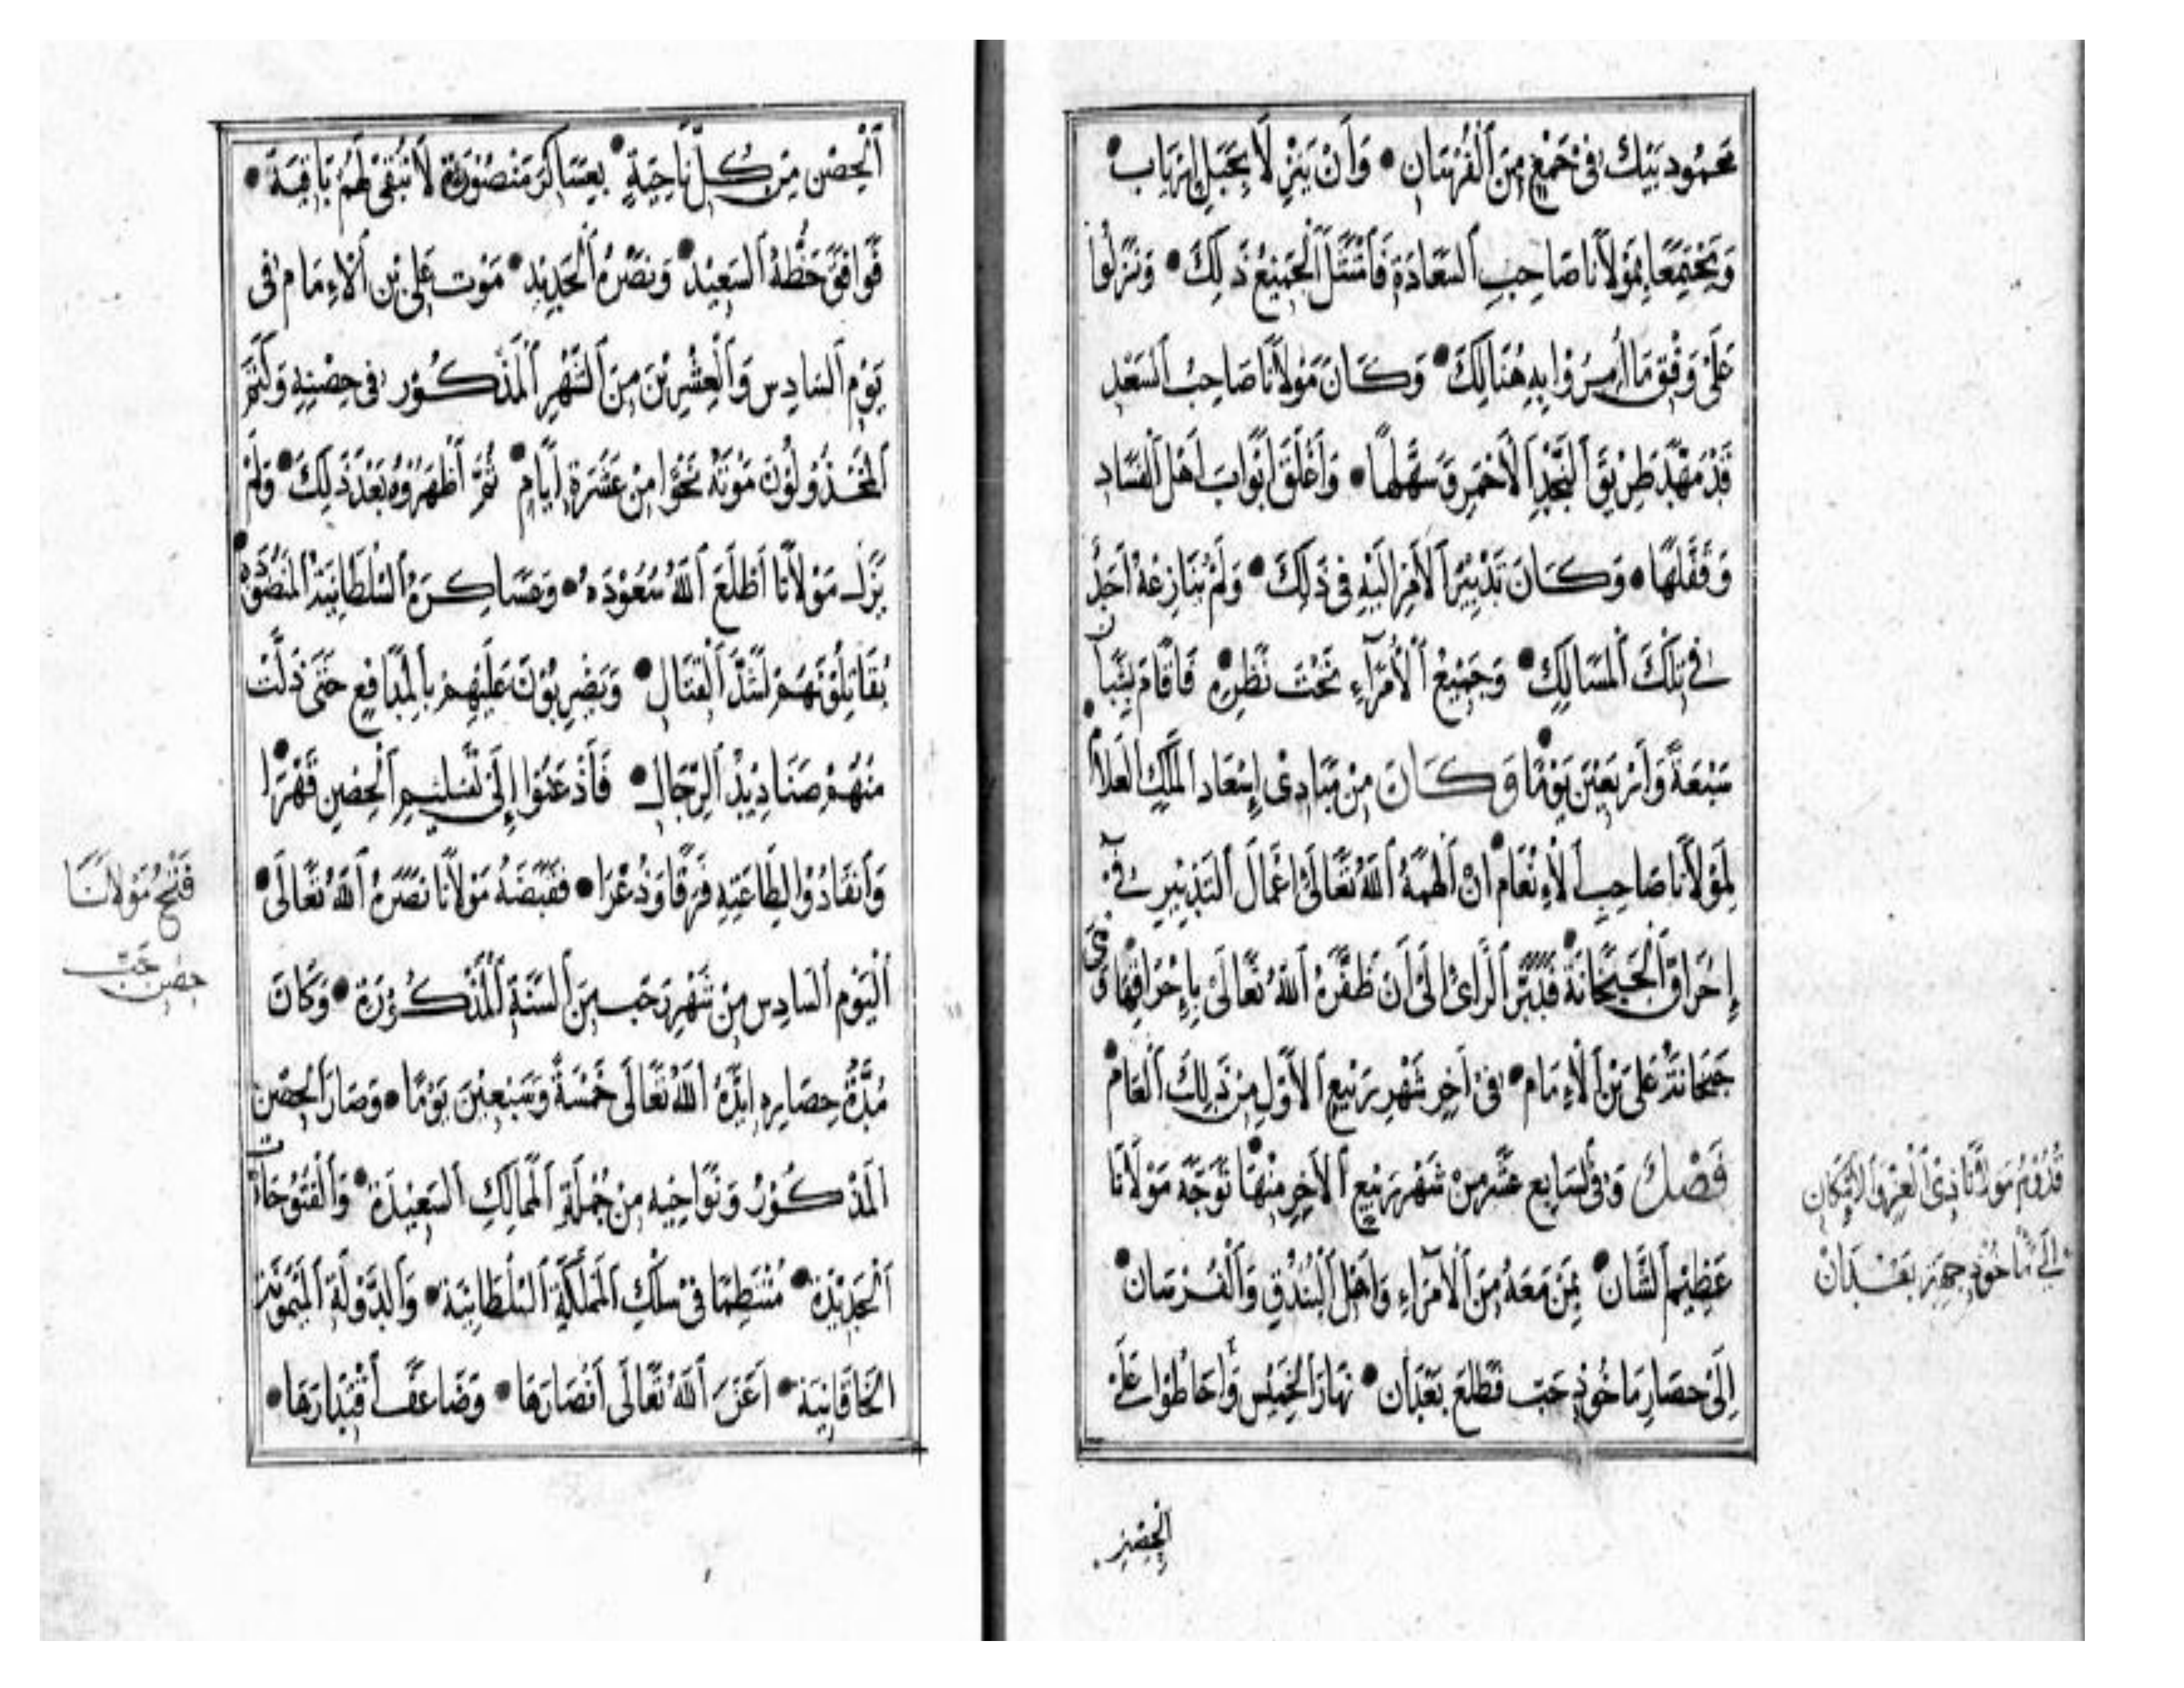 محمود بيك في جمع من الفرسان • وأن ينزلا بجبل إرياب •
ويجتمعا بمولانا صاحب السعادة فامتثل الجميع ذلك • ونزلوا
على وفق ما أمروا به هنالك • وكان مولانا صاحب السعد
قد مهد طريق النجد الأحمر وسهلها • وأغلق أبواب أهل الفساد
وقفلها • وكان تدبير الأمر إليه في ذلك • ولم ينازعه أحد
في تلك المسالك • وجميع الأمراء تحت نظره فأقام بشبان
سبعة وأربعين يوما • وكان من مبادئ إسعاد الملك العلام •
لمولانا صاحب الإنعام • أن ألهمه الله تعالى إعمال التدبير في
إحراق الجبخانة • فدبر الرأي إلى أن ظفره الله تعالى بإحراقها وهي
جبخانة علي بن الإمام • في آخر شهر ربيع الأول من ذلك العام •
فصل وفي السابع عشر من شهر ربيع الآخر منها • توجه مولانا
عظيم الشان • بمن معه من الأمراء وأهل البندق والفرسان •
إلى حصار ماخوذ حب فطلع بعدان • نهار الخميس وأحاطوا على
الحصن
قدوم مولانا ذي العز والإمكان
إلى ماخوذ جهز بعدان
الحصن من كل ناحية • بعساكر منصورة لا تبقى لهم باقية •
فوافق حظه السعيد • ونصره الجديد • موت علي بن الإمام في
يوم السادس والعشرين من الشهر المذكور في حصنه وكتم
المخذولون موته نحوا من عشرة أيام • ثم أظهروه بعد ذلك • ولم
يزل مولانا أطلع الله سعوده • وعساكره السلطانية المنصورة •
يقاتلونهم أشد القتال • ويضربون عليهم بالمدافع حتى ذلت
منهم صناديد الرجال • فأذعنوا إلى تسليم الحصن قهرا •
وانقادوا لطاعته فرقا وذعرا • فقبضه مولانا نصره الله تعالى •
اليوم السادس من شهر رجب من السنة المذكورة • وكان
مدة حصاره أيده الله تعالى خمسة وسبعين يوما • وصار الحصن
المذكور ونواحيه من جملة الممالك السعيدة • والفتوحات
الجديدة • منتظما في سلك المملكة السلطانية • والدولة الميمونة
الخاقانية • أعز الله تعالى أنصارها • وضاعف اقتدارها •
فتح مولانا
حصن حب